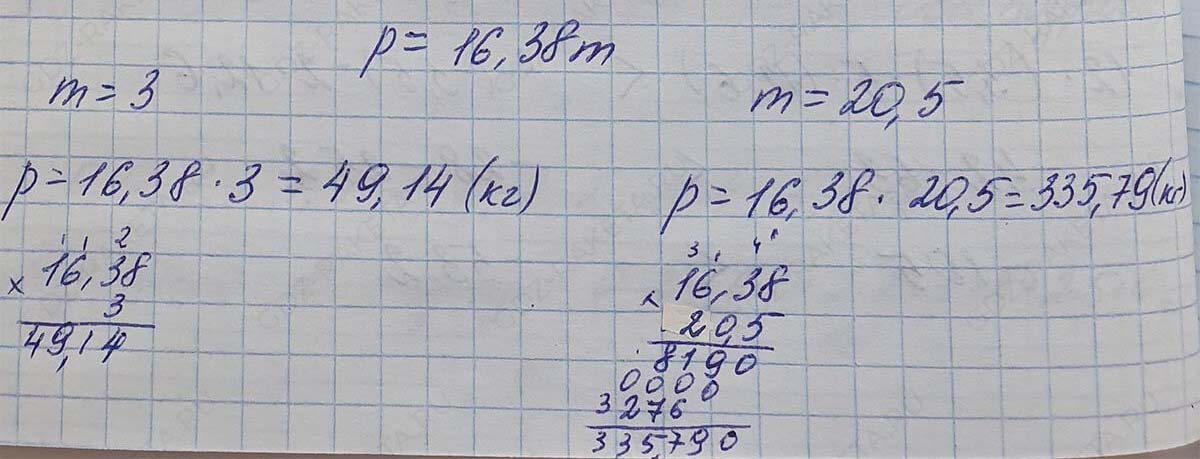 p = 16,38m
m = 3
p = 16,38 · 3 = 49,14 (кг)
1 1 2
× 16,38
3
49,14
m = 20,5
p = 16,38 · 20,5 = 335,79 (кг)
3 1 4
× 16,38
20,5
8190
0000
3276
335,790